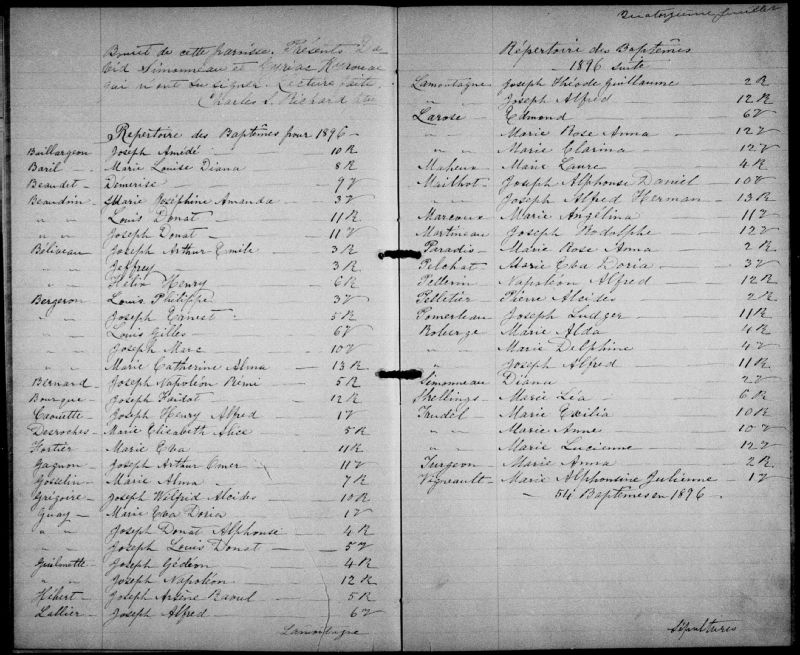 Bourret de cette paroisse. Présents Da-
vid Simonneau et Cyriac Kyrouac
qui n'ont su signer. Lecture faite.
Charles S. Richard Ptre
Répertoire des Baptêmes pour 1896 —
Baillargeon Joseph Amédé — 10 R
Baril — Marie Louise Diana — 8 R
Beaudet — Démerise — 9 V
Beaudoin — Marie Joséphine Amanda — 3 V
" " Louis Donat — 11 R
" " Joseph Donat — 11 V
Béliveau — Joseph Arthur Emile — 3 R
" " Jeffrey — 3 R
" " Félix Henry — 6 R
Bergeron Louis Philippe — 3 V
" Joseph Ernest — 5 R
" Louis Gilles — 6 V
" Joseph Marc — 10 V
" " Marie Catherine Alma — 13 R
Bernard — Joseph Napoléon Rémi — 5 R
Bourque — Joseph — 12 R
Caouette — Joseph Henry Alfred — 1 V
Desroches — Marie Elizabeth Alice — 5 R
Fortier — Marie Eva — 11 R
Gagnon — Joseph Arthur Omer — 11 V
Gosselin — Marie Alma — 7 R
Grégoire — Joseph Wilfrid Alcides — 10 R
Guay — Marie Eva Doria — 1 V
" " Joseph Donat Alphonse — 4 R
" " Joseph Louis Donat — 5 V
Guilmette — Joseph Gédéon — 4 R
" " Joseph Napoléon — 12 R
Hébert — Joseph Arsène Raoul — 5 R
Lallier — Joseph Alfred — 6 V
Lamontagne
Quatorzième feuillet
Répertoire des Baptêmes
— 1896 suite
Lamontagne Joseph Guillaume — 2 R
" " Joseph Alfred — 12 R
Larose — Edmond — 6 V
" " Marie Rose Anna — 12 V
" " Marie Clarina — 12 V
Maheux — Marie Laure — 4 R
Mailhot — Joseph Alphonse Daniel — 10 V
" Joseph Alfred Herman — 13 R
Marcoux — Marie Angelina — 11 V
Martineau Joseph Rodolphe — 12 V
Paradis — Marie Rose Anna — 2 R
Pelchat — Marie Eva Doria — 3 V
Pellerin — Napoléon Alfred — 12 R
Pelletier Pierre Alcides — 2 R
Pomerleau Joseph Ludger — 11 R
Roberge — Marie Alda — 4 R
" " Marie Delphine — 4 V
" " Joseph Alfred — 11 R
Simonneau — Diana — 2 V
Skellings — Marie Léa — 6 R
Trudel — Marie Exilia — 10 R
" " Marie Anne — 10 V
" " Marie Lucienne — 12 V
Turgeon — Marie Anna — 2 R
Vigneault — Marie Alphonsine Julienne — 1 V
— 54 Baptêmes en 1896 —
Sépultures